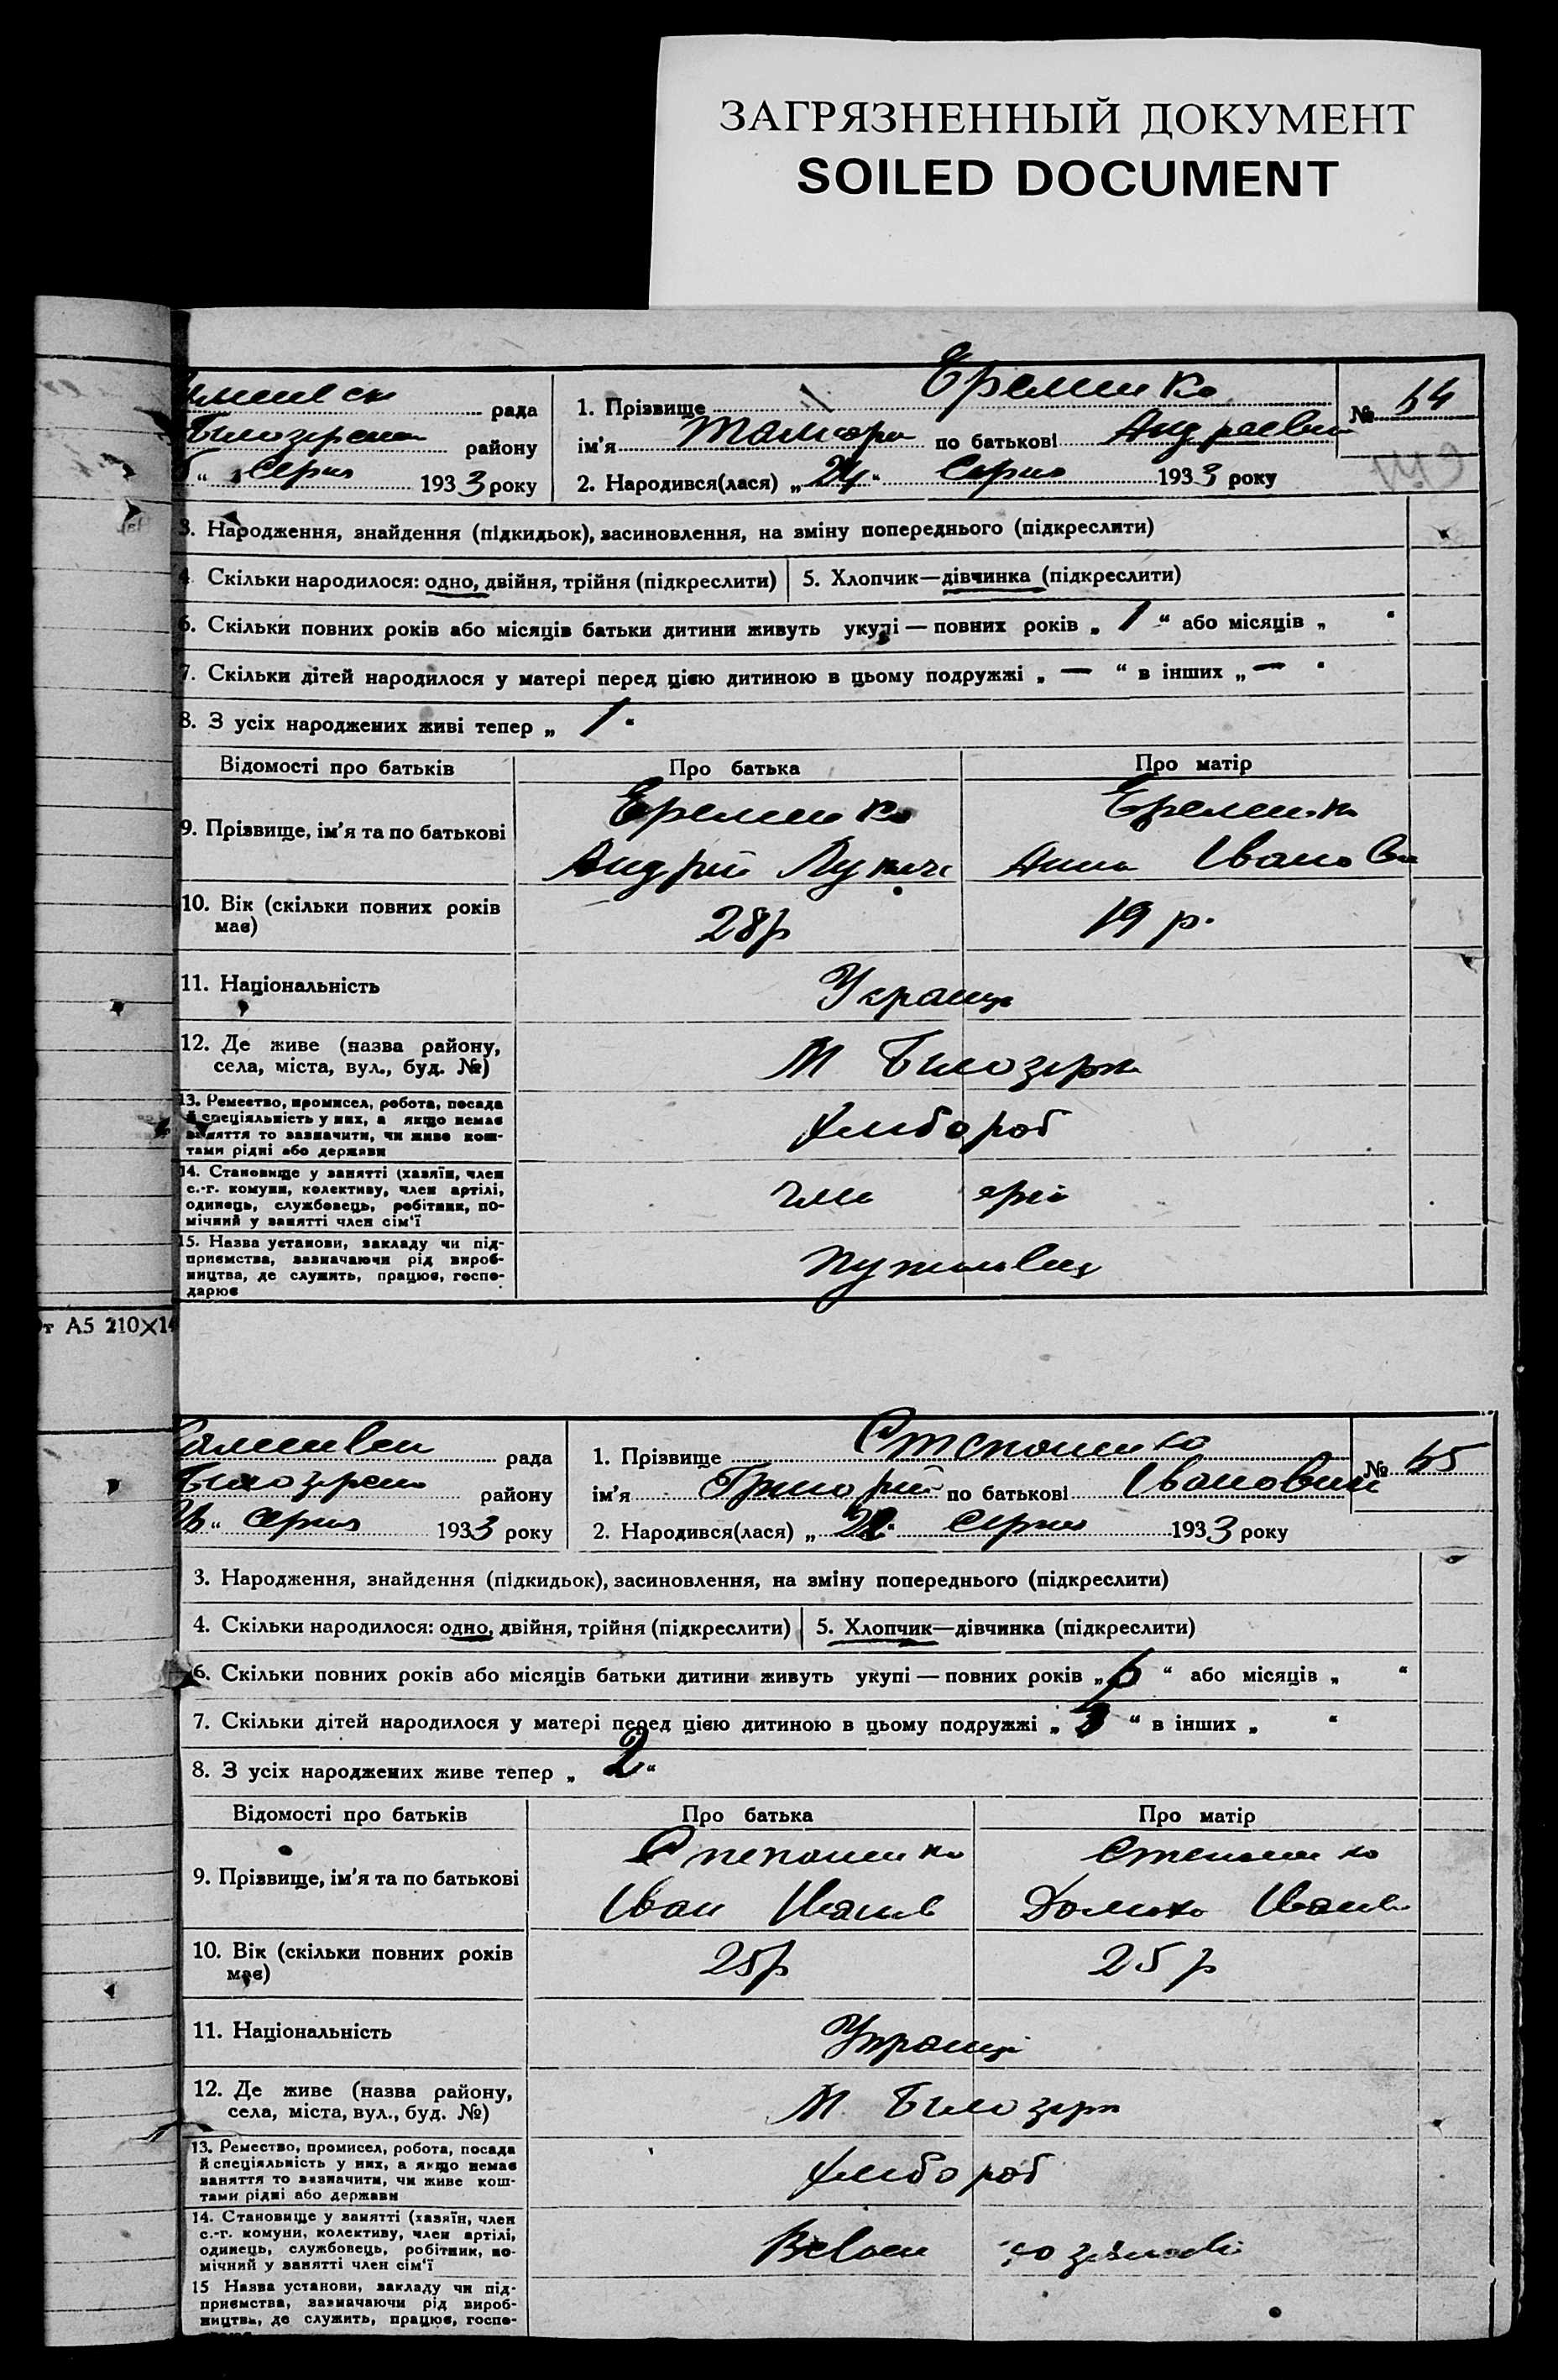 ЗАГРЯЗНЕННЫЙ ДОКУМЕНТ
SOILED DOCUMENT
рада
району
“ Серня 1933 року
1. Прізвище Еременко
ім’я Тамара по батькові Андреевна
2. Народився(лася) „24“ Серня 1933 року
№ 54
3. Народження, знайдення (підкидьок), засиновлення, на зміну попереднього (підкреслити)
4 Скільки народилося: одно, двійня, трійня (підкреслити)
5. Хлопчик—дівчинка (підкреслити)
6. Скільки повних років або місяців батьки дитини живуть укупі — повних років „ 1 “ або місяців „ “
7. Скільки дітей народилося у матері перед цією дитиною в цьому подружжі „ — “ в інших „ — “
8. З усіх народжених живі тепер „ 1 “
Відомості про батьків
Про батька
Про матір
9. Прізвище, ім’я та по батькові
Еременко
Андрій
Еременко
Анна Іванов
10. Вік (скільки повних років
має)
28р
19 р.
11. Національність
Украінці
12. Де живе (назва району,
села, міста, вул., буд. №)
М Білозірка
13. Ремество, промисел, робота, посада
й спеціяльність у них, а якщо немає
заняття то зазначити, чи живе кош-
тами рідні або держави
хлібороб
14. Становище у занятті (хазяїн, член
с.-г. комуни, колективу, член артілі,
одинець, службовець, робітник, по-
мічний у занятті член сім’ї
член арт
15. Назва установи, закладу чи під-
приємства, зазначаючи рід вироб-
ництва, де служить, працює, госпо-
дарює
т А5 210×14
рада
району
“ Серня 1933 року
1. Прізвище Степаненко
ім’я Григорій по батькові Іванович
2. Народився(лася) „ “ Серня 1933 року
№ 55
3. Народження, знайдення (підкидьок), засиновлення, на зміну попереднього (підкреслити)
4. Скільки народилося: одно, двійня, трійня (підкреслити)
5. Хлопчик—дівчинка (підкреслити)
6. Скільки повних років або місяців батьки дитини живуть укупі — повних років „6 “ або місяців „ “
7. Скільки дітей народилося у матері перед цією дитиною в цьому подружжі „ 3 “ в інших „ “
8. З усіх народжених живе тепер „ 2 “
Відомості про батьків
Про батька
Про матір
9. Прізвище, ім’я та по батькові
Степаненко
Іван Іванів
Степаненко
Домаха Іванів
10. Вік (скільки повних років
має)
25р
25 р
11. Національність
Украінці
12. Де живе (назва району,
села, міста, вул., буд. №)
М Білозірка
13. Ремество, промисел, робота, посада
й спеціяльність у них, а якщо немає
заняття то зазначити, чи живе кош-
тами рідні або держави
хлібороб
14. Становище у занятті (хазяїн, член
с.-г. комуни, колективу, член артілі,
одинець, службовець, робітник, по-
мічний у занятті член сім’ї
15 Назва установи, закладу чи під-
приємства, зазначаючи рід вироб-
ництва, де служить, працює, госпо-